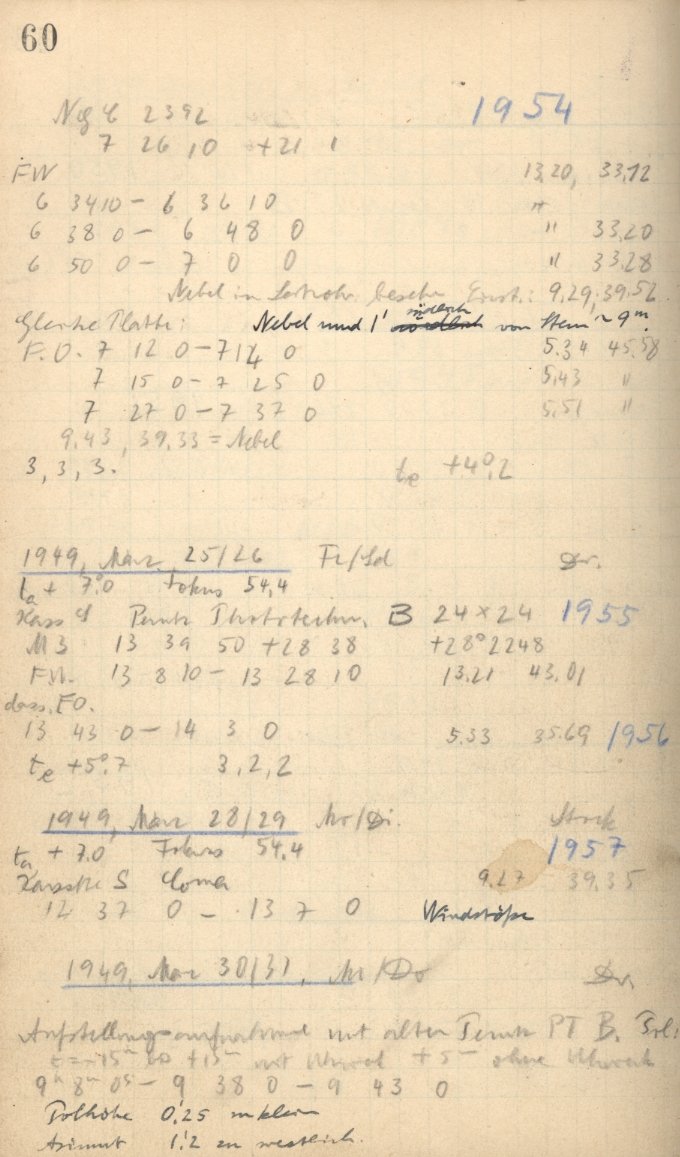 60
1954
NGC 2392
7 26 10 +21 1
FW 13,20, 33,12
6 34 10 – 6 36 10 "
6 38 0 – 6 48 0 " 33,20
6 50 0 – 7 0 0 " 33,28
Nebel in 9,29, 39,52
Gleiche Platte: Nebel rund 1' südlich nördlich von Stern ~ 9m.
F.O. 7 12 0 – 7 14 0 5.34 45.58
7 15 0 – 7 25 0 5,43 "
7 27 0 – 7 37 0 5.51 "
9.43, 39.33 = Nebel
3, 3, 3. te +4°,2
1949, März 25/26 Fr/Sd Dr.
ta + 7.0 Fokus 54,4
Perutz Phototechn. B 24 x 24 1955
M3 13 39 50 +28 38 +28° 2248
FW. 13 8 10 – 13 28 10 13.21 43.01
dass. FO.
13 43 0 – 14 3 0 5.33 35.69 1956
te +5°.7 3,2,2
1949, März 28/29 Mo/Di.
1957
ta + 7.0 Fokus 54.4
Kassette S Coma 9.27 39.35
12 37 0 – 13 7 0 Windstöße
1949, März 30/31, Mi/Do Dr.
Aufstellungsaufnahme mit alter Perutz PT B. Pol:
mit Uhrwerk + 5m ohne Uhrwerk
9h 8m 0s – 9 38 0 – 9 43 0
Polhöhe 0,25 zu klein
Azimut 1.'2 zu westlich.